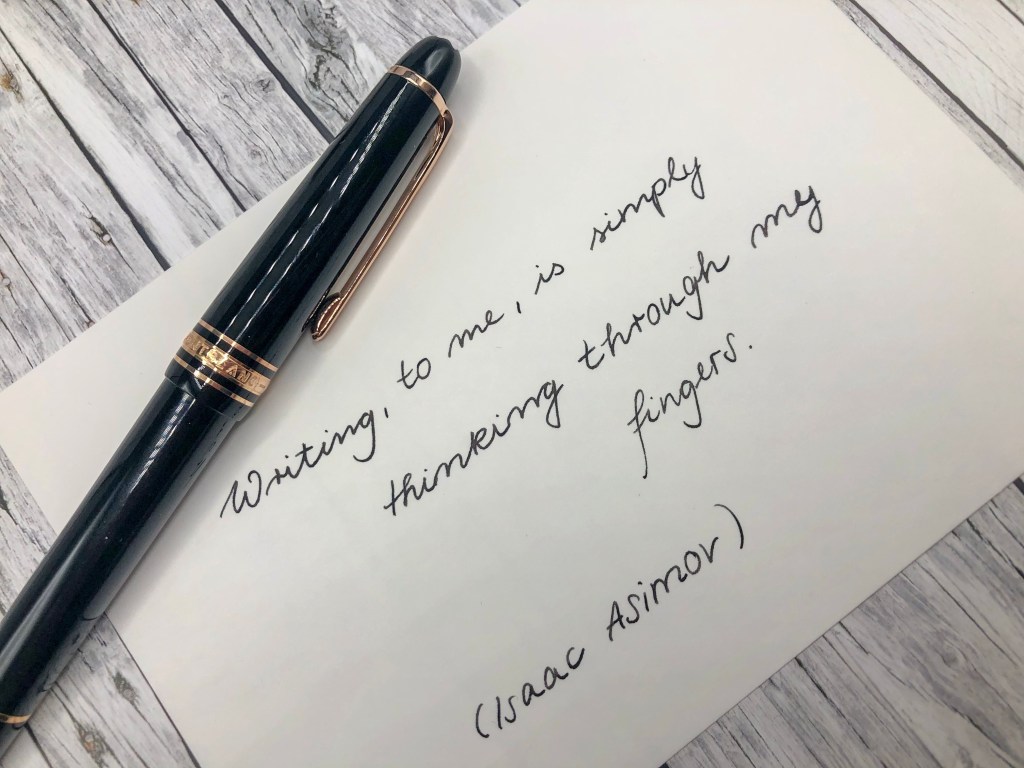 Writing, to me, is simply
thinking through my
fingers.
(Isaac Asimov)